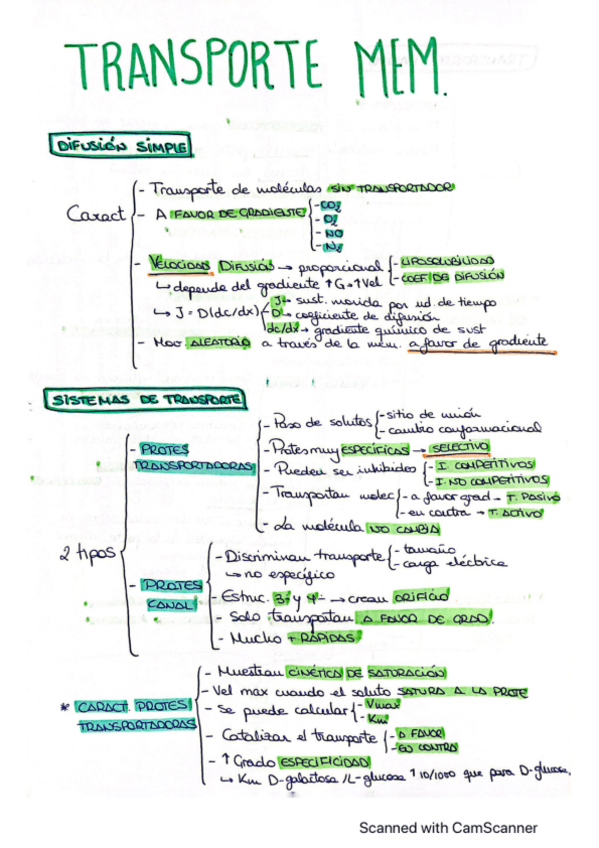 TRANSPORTE MEM.
DIFUSIÓN SIMPLE
- Transporte de moléculas SIN TRANSPORTADOR
Caract
- A FAVOR DE GRADIENTE
- CO2
- O2
- NO
- N2
- VELOCIDAD DIFUSIÓN → proporcional
- LIPOSOLUBILIDAD
- COEF. DE DIFUSIÓN
↳ depende del gradiente ↑G → ↑Vel
↳ J = D(dc/dx)
J → sust. movida por ud. de tiempo
D → coeficiente de difusión
dc/dx → gradiente químico de sust
- Mov ALEATORIO a través de la mem. a favor de gradiente
SISTEMAS DE TRANSPORTE
2 tipos
- PROTES TRANSPORTADORAS
- Paso de solutos
- sitio de unión
- cambio conformacional
- Protes muy ESPECÍFICAS → SELECTIVO
- Pueden ser inhibidos
- I. COMPETITIVOS
- I. NO COMPETITIVOS
- Transportan molec
- a favor grad → T. PASIVO
- en contra → T. ACTIVO
- La molécula NO CAMBIA
- PROTES CANAL
- Discriminan transporte
- tamaño
- carga eléctrica
↳ no específico
- Estruc. 3ª y 4ª → crean ORIFICIO
- Solo transportan A FAVOR DE GRAD.
- Mucho + RÁPIDAS
* CARACT. PROTES TRANSPORTADORAS
- Muestran CINÉTICA DE SATURACIÓN
- Vel max cuando el soluto SATURA A LA PROTE
- Se puede calcular
- Vmax
- Km
- Catalizar el transporte
- A FAVOR
- EN CONTRA
- ↑ Grado ESPECIFICIDAD
↳ Km D-galactosa /L-glucosa ↑ 10/1000 que para D-glucosa.
Scanned with CamScanner